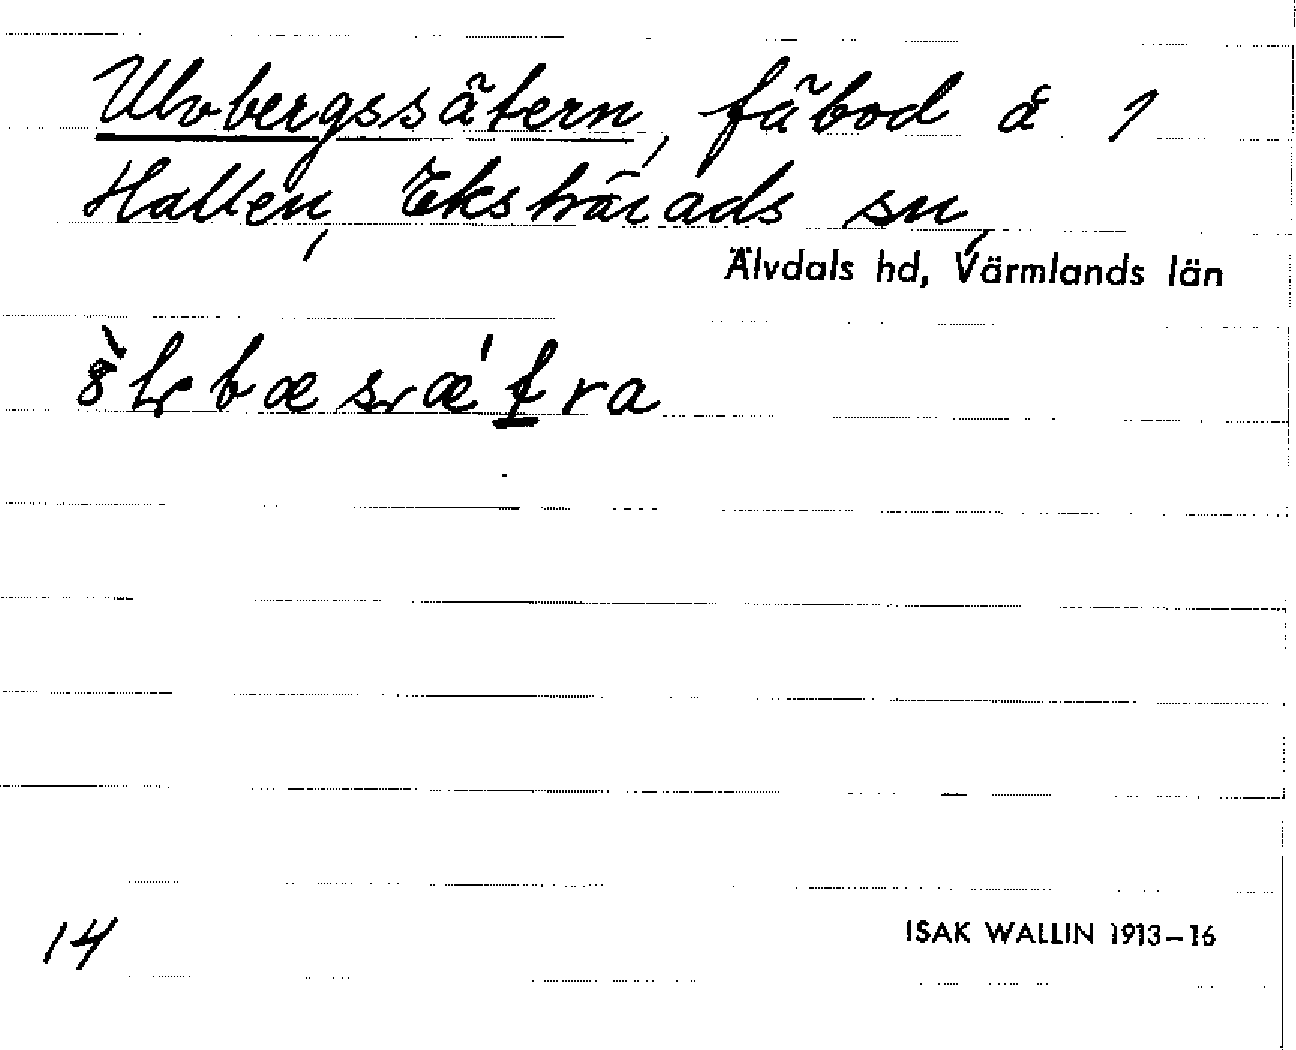 Ulvbergssätern, fäbod å 1
Hallen, Ekshärads sn,
Älvdals hd, Värmlands län
14
ISAK WALLIN 1913–16